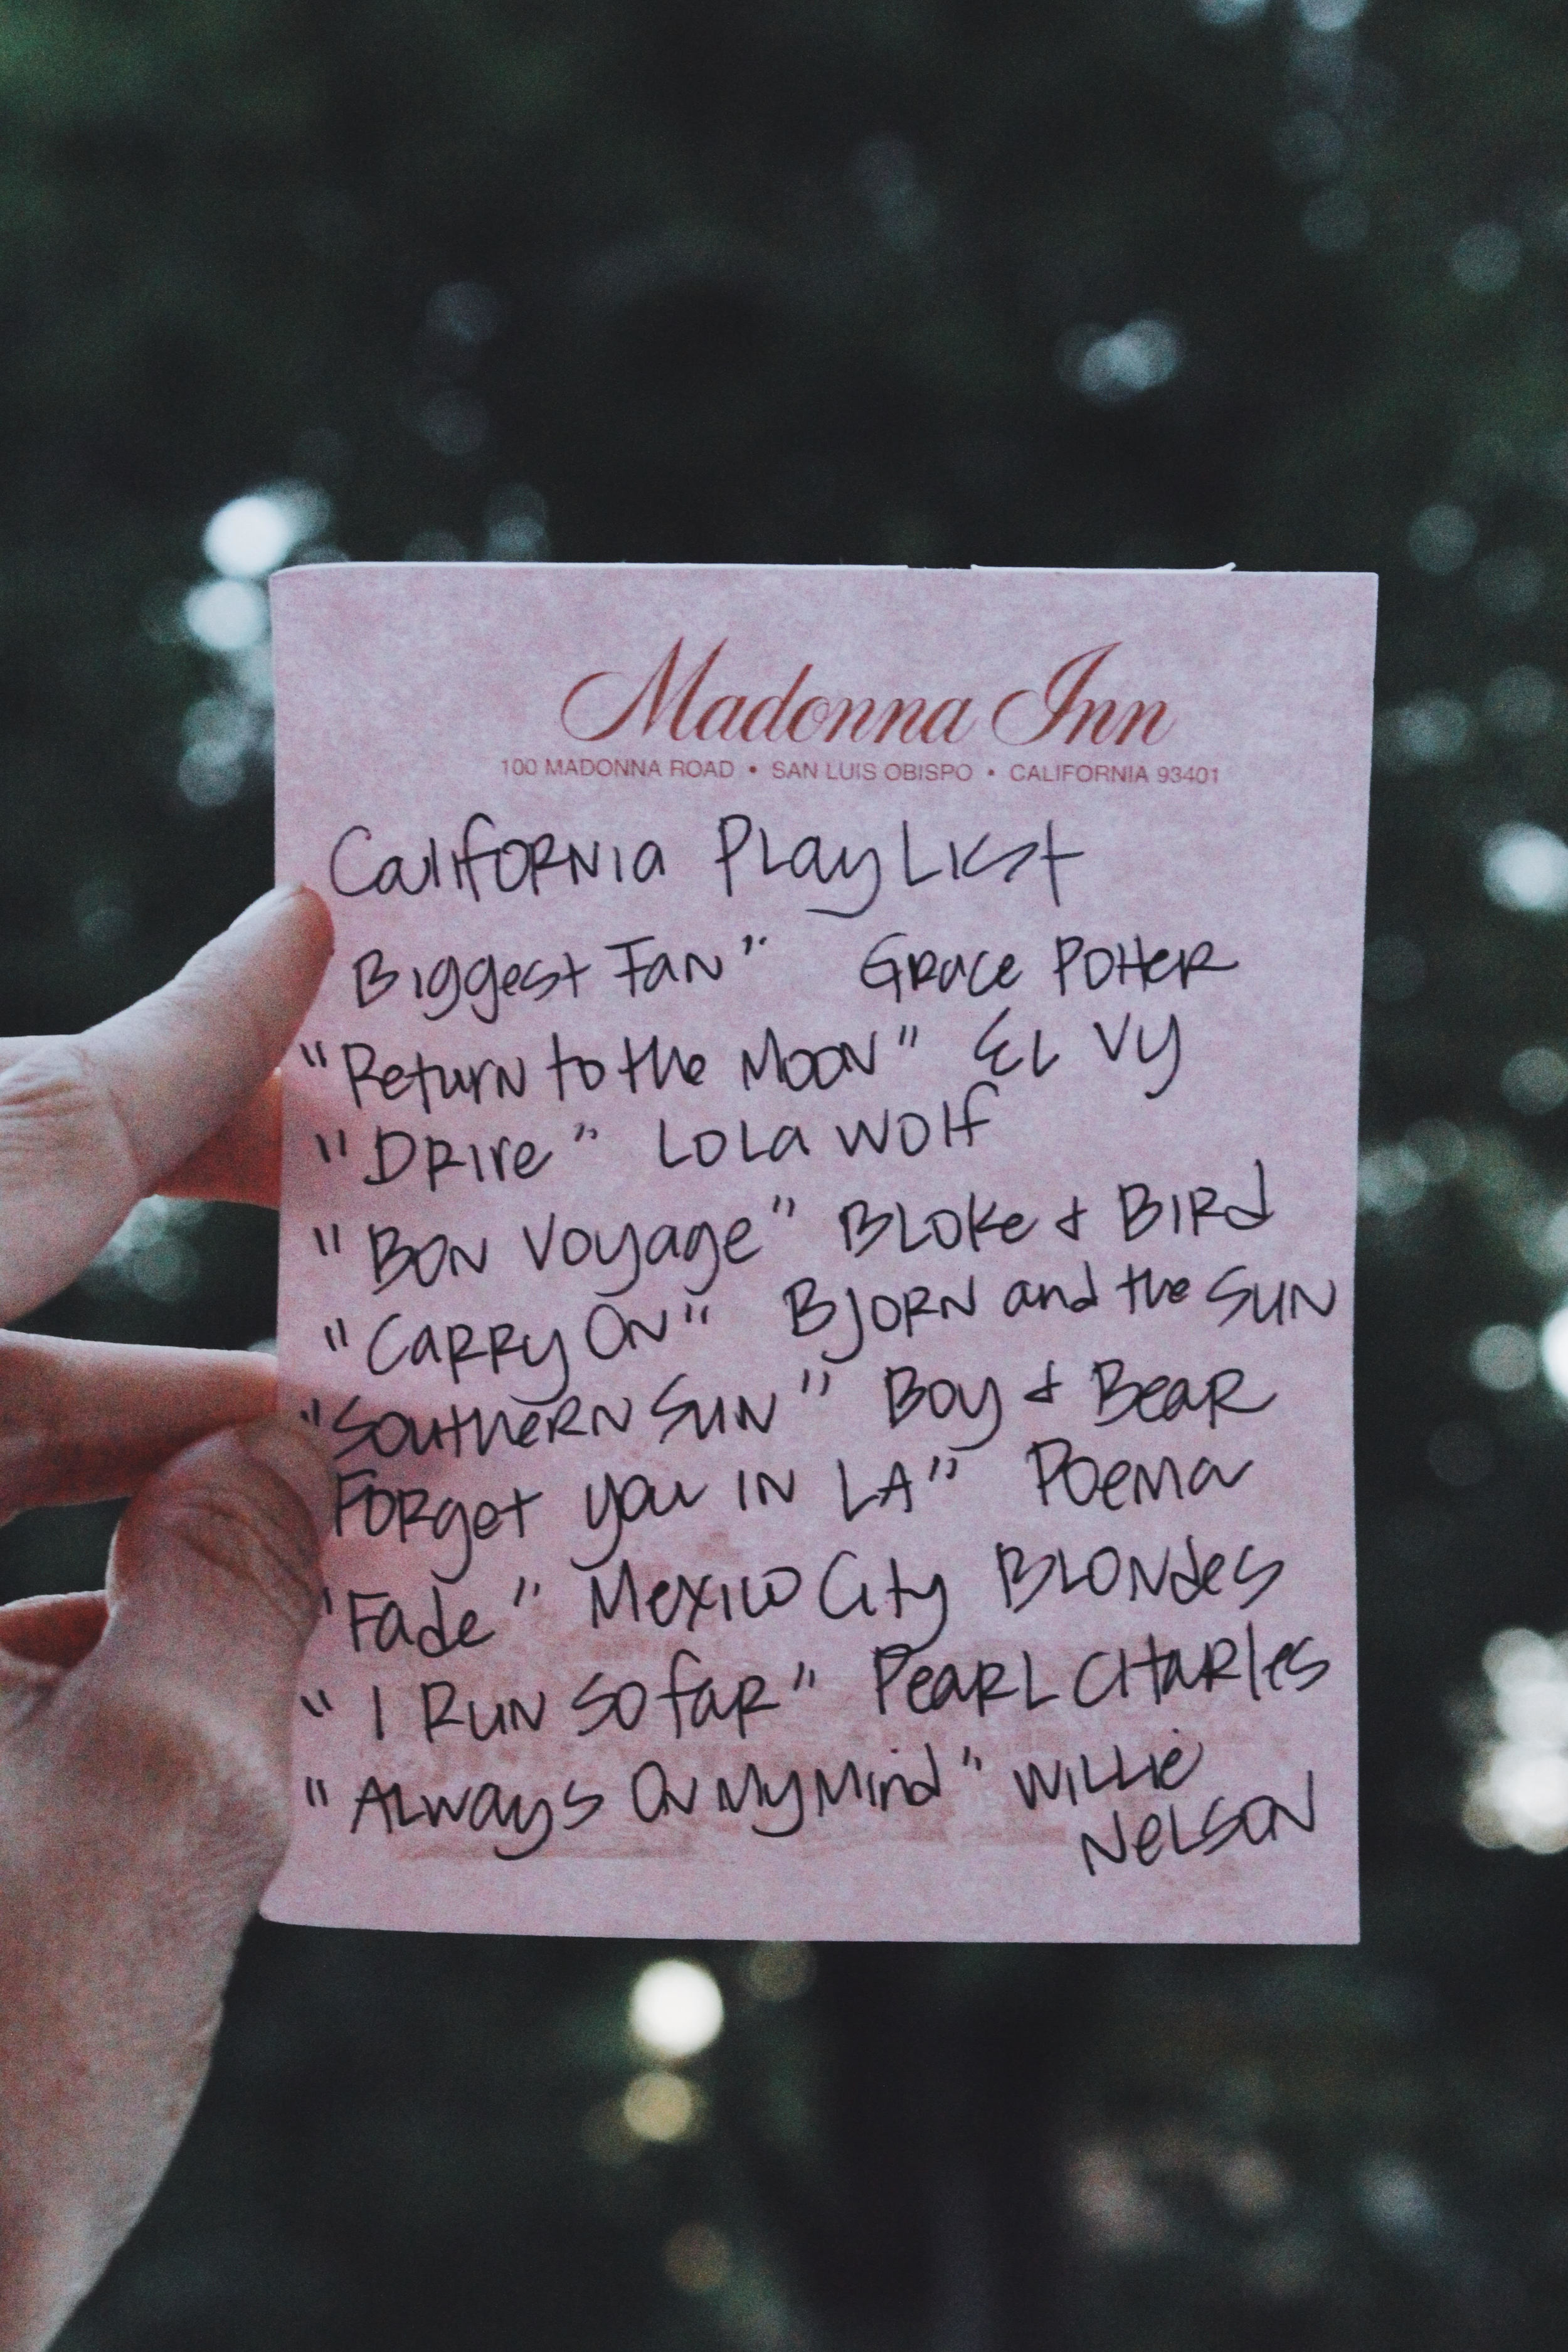 Madonna Inn
100 MADONNA ROAD • SAN LUIS OBISPO • CALIFORNIA 93401
California Playlist
Biggest Fan" Grace Potter
"Return to the Moon" EL VY
"Drive" Lola Wolf
"Bon Voyage" Bloke & Bird
"Carry On" Bjorn and the Sun
"Southern Sun" Boy & Bear
Forget you in LA" Poema
"Fade" Mexico City Blondes
"I Run So far" Pearl Charles
"Always On My Mind" Willie
Nelson